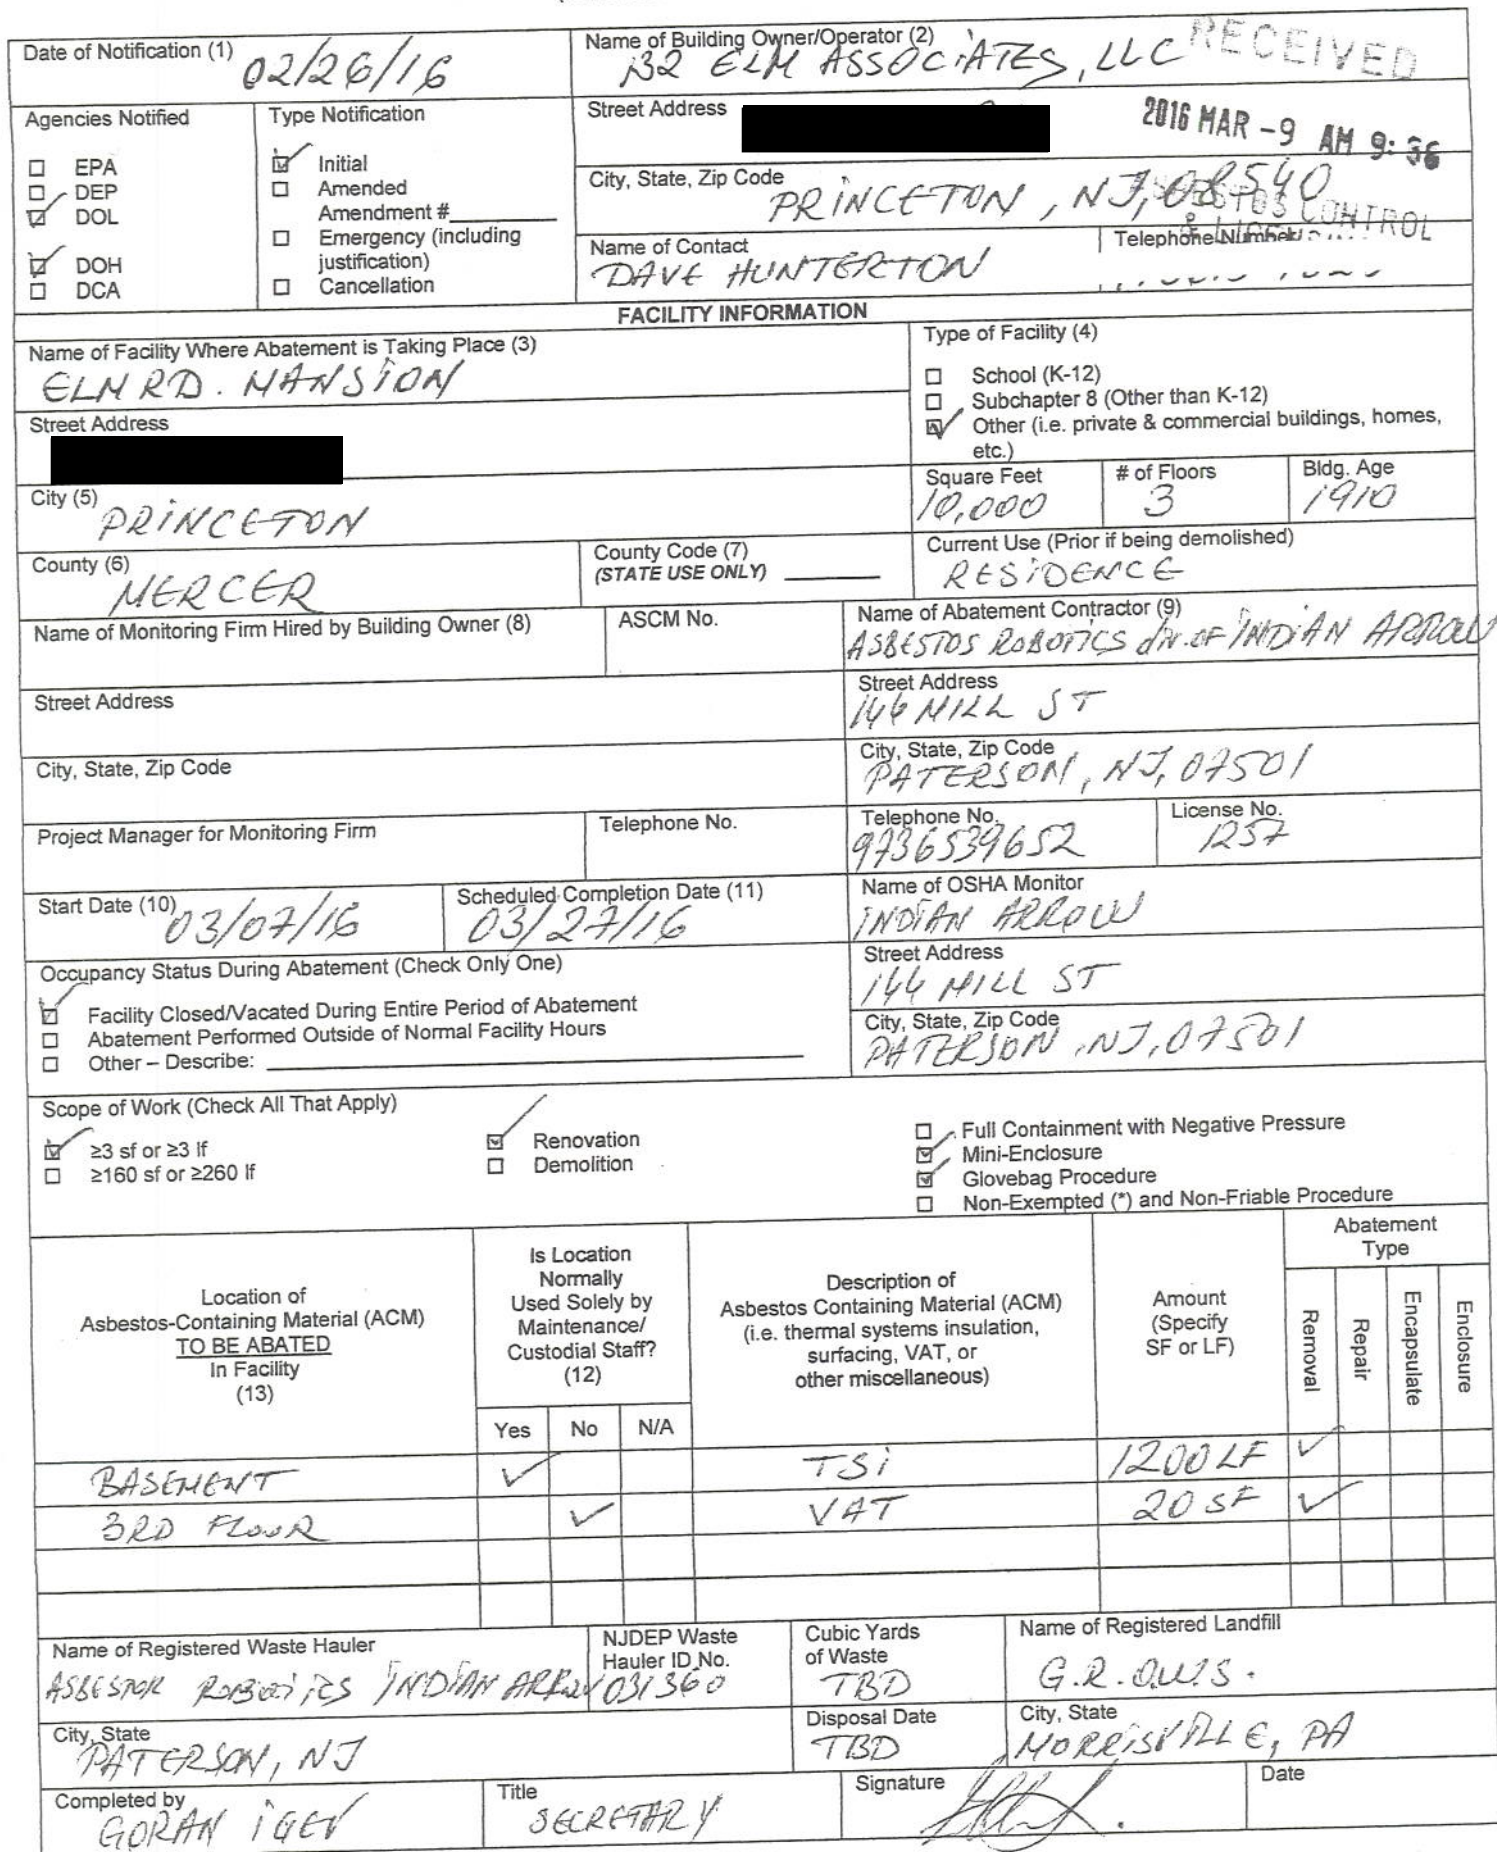 Date of Notification (1)
02/26/16
Name of Building Owner/Operator (2)
132 ELM ASSOCIATES, LLC
RECEIVED
2016 MAR -9 AM 9: 36
Agencies Notified
☐ EPA
☐ DEP
☑ DOL
☑ DOH
☐ DCA
Type Notification
☑ Initial
☐ Amended
Amendment #
☐ Emergency (including
justification)
☐ Cancellation
Street Address
City, State, Zip Code
PRINCETON, NJ, 08540
CONTROL
Name of Contact
DAVE HUNTERTON
Telephone Number
FACILITY INFORMATION
Name of Facility Where Abatement is Taking Place (3)
ELM RD. MANSION
Street Address
Type of Facility (4)
☐ School (K-12)
☐ Subchapter 8 (Other than K-12)
☑ Other (i.e. private & commercial buildings, homes,
etc.)
City (5)
PRINCETON
Square Feet
10,000
# of Floors
3
Bldg. Age
1910
County (6)
MERCER
County Code (7)
(STATE USE ONLY)
Current Use (Prior if being demolished)
RESIDENCE
Name of Monitoring Firm Hired by Building Owner (8)
ASCM No.
Name of Abatement Contractor (9)
ASBESTOS ROBOTICS div. OF INDIAN ARROW
Street Address
Street Address
144 MILL ST
City, State, Zip Code
City, State, Zip Code
PATERSON, NJ, 07501
Project Manager for Monitoring Firm
Telephone No.
Telephone No.
9736539652
License No.
1257
Start Date (10)
03/07/16
Scheduled Completion Date (11)
03/27/16
Name of OSHA Monitor
INDIAN ARROW
Occupancy Status During Abatement (Check Only One)
☑ Facility Closed/Vacated During Entire Period of Abatement
☐ Abatement Performed Outside of Normal Facility Hours
☐ Other – Describe:
Street Address
144 MILL ST
City, State, Zip Code
PATERSON, NJ, 07501
Scope of Work (Check All That Apply)
☑ ≥3 sf or ≥3 lf
☐ ≥160 sf or ≥260 lf
☑ Renovation
☐ Demolition
☐ Full Containment with Negative Pressure
☑ Mini-Enclosure
☑ Glovebag Procedure
☐ Non-Exempted (*) and Non-Friable Procedure
Location of
Asbestos-Containing Material (ACM)
TO BE ABATED
In Facility
(13)
Is Location
Normally
Used Solely by
Maintenance/
Custodial Staff?
(12)
Yes No N/A
Description of
Asbestos Containing Material (ACM)
(i.e. thermal systems insulation,
surfacing, VAT, or
other miscellaneous)
Amount
(Specify
SF or LF)
Abatement
Type
Removal
Repair
Encapsulate
Enclosure
BASEMENT ✓ TSI 1200 LF ✓
3RD FLOOR ✓ VAT 20 SF ✓
Name of Registered Waste Hauler
ASBESTOR ROBOTICS INDIAN ARROW
NJDEP Waste
Hauler ID No.
031360
Cubic Yards
of Waste
TBD
Name of Registered Landfill
G.R.O.W.S.
City, State
PATERSON, NJ
Disposal Date
TBD
City, State
MORRISVILLE, PA
Completed by
GORAN IGEV
Title
SECRETARY
Signature
Date